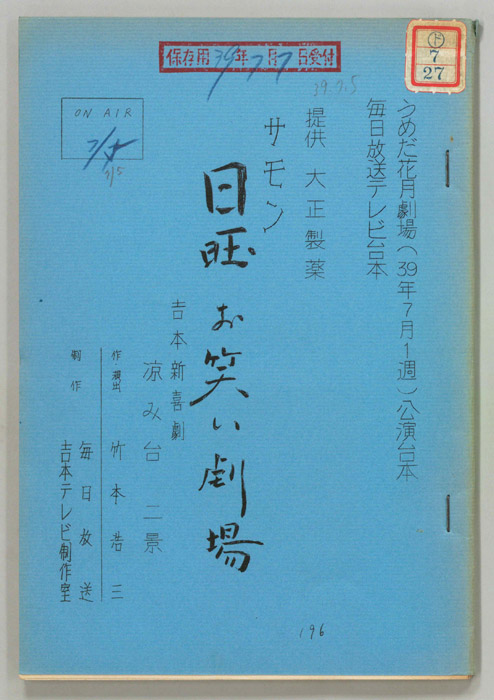 うめだ花月劇場(39年7月1週)公演台本
毎日放送テレビ台本
提供 大正製薬
サモン
日旺 お笑い劇場
吉本新喜劇
凉み台 二景
作・演出 竹本浩三
制作 毎日放送
吉本テレビ制作室
保存用 39年7月7日受付
39.7.5
ON AIR
7/5
7/5
ト
7
27
196